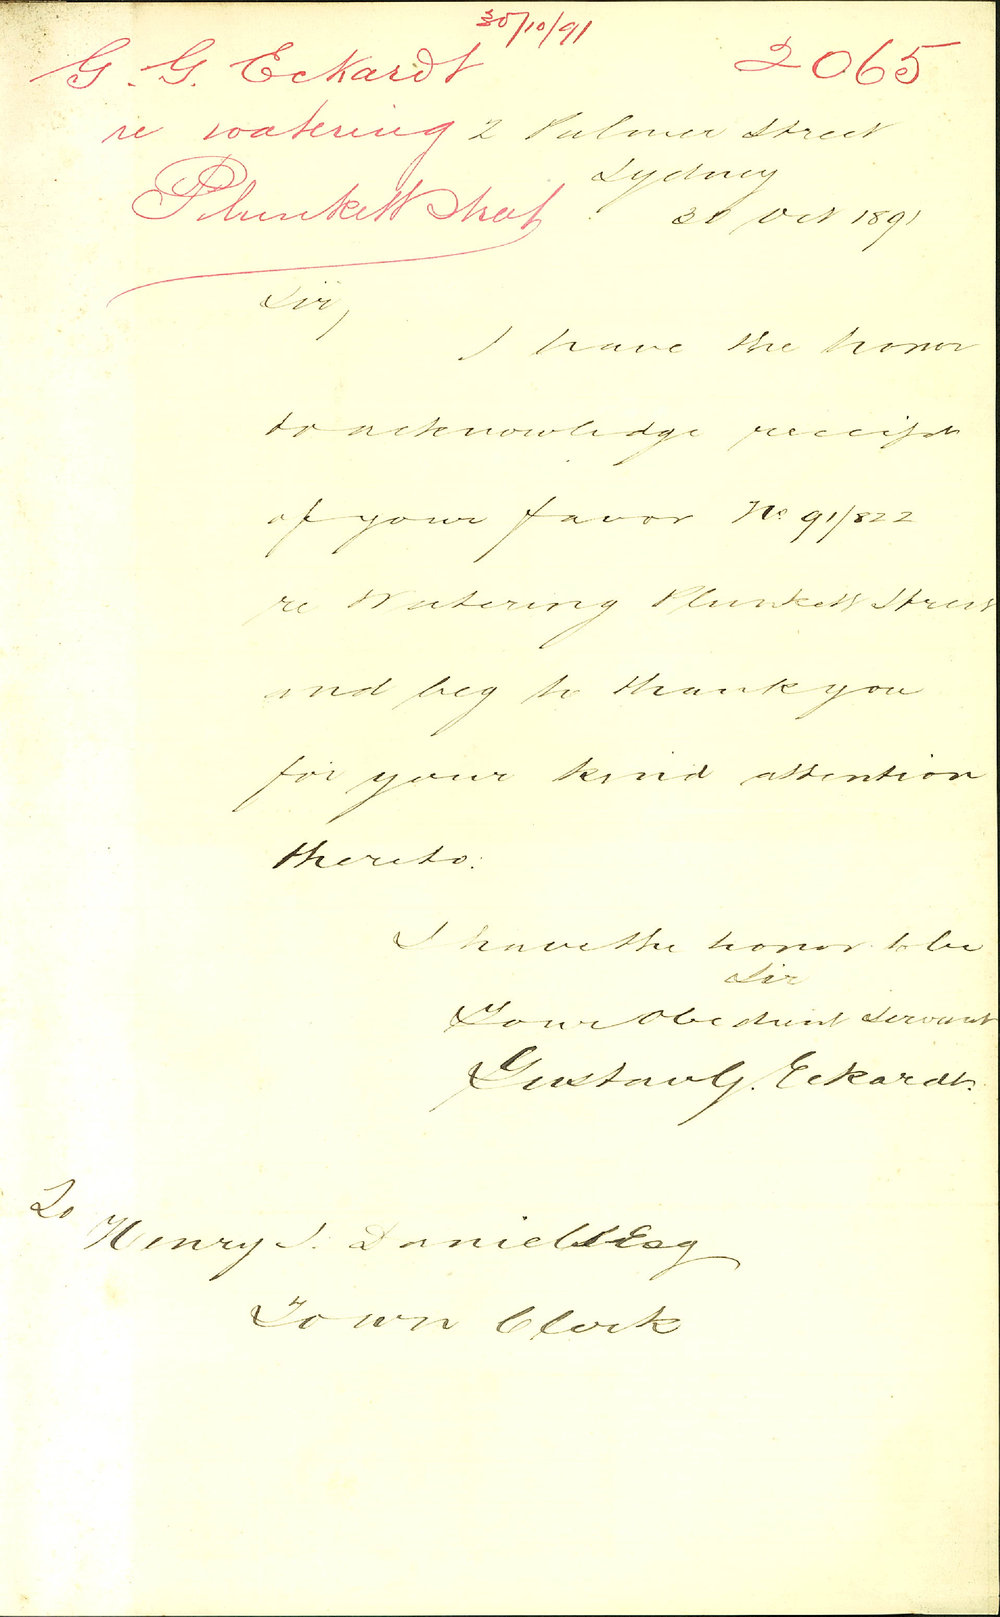 30/10/91
G. G. Eckardt
2065
re watering
Plunkett Street
2 Palmer Street
Sydney
30 Oct 1891
Sir,
I have the honor
to acknowledge receipt
of your favor No 91/822
re Watering Plunkett Street
and beg to thank you
for your kind attention
thereto.
I have the honor to be
Sir
Your Obedient Servant
Gustav G. Eckardt.
To
Henry J. Daniels Esq
Town Clerk